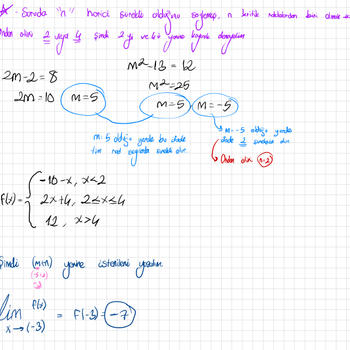 * Soruda "n" harici sürekli olduğunu söylemiş, n kritik noktalardan biri olmalı
Ondan olan 2 veya 4 şimdi 2 yi ve 4'ü yerine koyarak deneyelim
2m-2=8
2m=10 m=5
m²-13=12
m²=25
m=5 m=-5
m=5 olduğu yerde bu ifade
tüm reel sayılarda sürekli olur.
m=-5 olduğu yerde
ifade 2 süreksiz olur.
Ondan olan n=2
f(x)= { -10-x, x<2
2x+4, 2≤x≤4
12, x>4
Şimdi (m+n) yerine istenileni yazalım.
(-5+2)
-3
lim f(x) = f(-3) = -7
x→(-3)